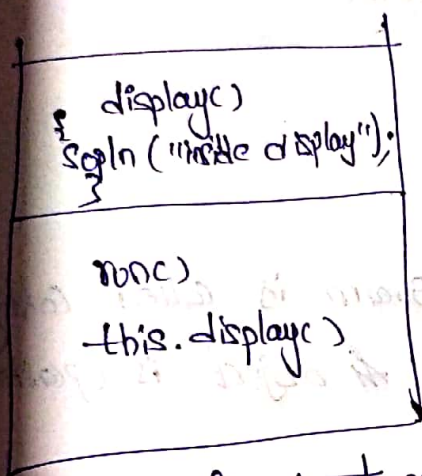 display()
{
Sopln ("inside display");
}
run()
this.display()